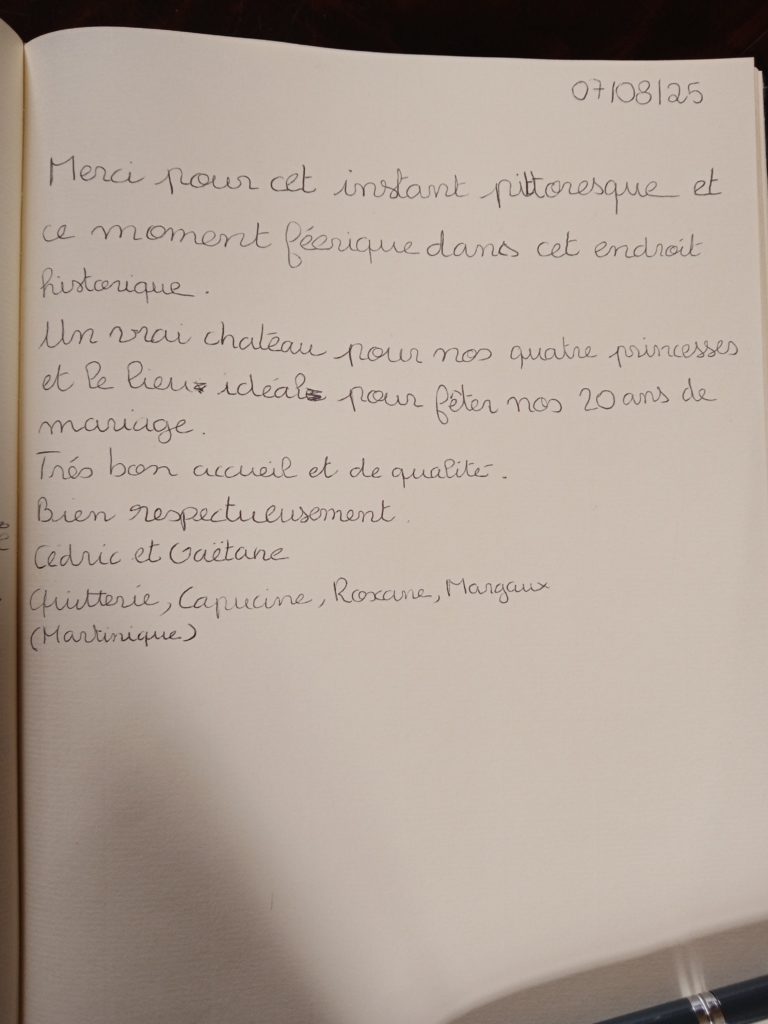 07/08/25
Merci pour cet instant pittoresque et
ce moment féerique dans cet endroit
historique.
Un vrai chatéau pour nos quatre princesses
et le lieu idéal pour fêter nos 20 ans de
mariage.
Trés bon accueil et de qualité.
Bien respectueusement.
Cédric et Gaëtane
Quitterie, Capucine, Roxane, Margaux
(Martinique)